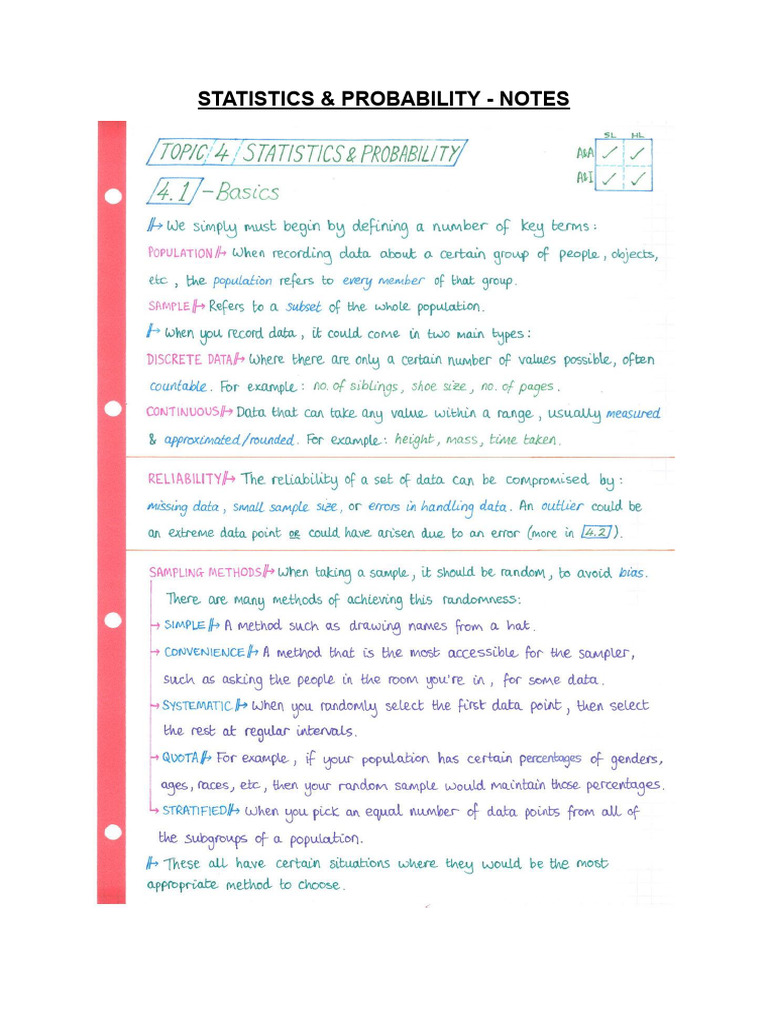 STATISTICS & PROBABILITY - NOTES
SL HL
TOPIC 4 STATISTICS & PROBABILITY
A&A ✓ ✓
A&I ✓ ✓
4.1 - Basics
We simply must begin by defining a number of key terms:
POPULATION → When recording data about a certain group of people, objects,
etc, the population refers to every member of that group.
SAMPLE → Refers to a subset of the whole population.
→ When you record data, it could come in two main types:
DISCRETE DATA → Where there are only a certain number of values possible, often
countable. For example: no. of siblings, shoe size, no. of pages.
CONTINUOUS → Data that can take any value within a range, usually measured
& approximated/rounded. For example: height, mass, time taken.
RELIABILITY → The reliability of a set of data can be compromised by:
missing data, small sample size, or errors in handling data. An outlier could be
an extreme data point or could have arisen due to an error (more in 4.2).
SAMPLING METHODS → When taking a sample, it should be random, to avoid bias.
There are many methods of achieving this randomness:
→ SIMPLE → A method such as drawing names from a hat.
→ CONVENIENCE → A method that is the most accessible for the sampler,
such as asking the people in the room you're in, for some data.
→ SYSTEMATIC → When you randomly select the first data point, then select
the rest at regular intervals.
→ QUOTA → For example, if your population has certain percentages of genders,
ages, races, etc, then your random sample would maintain those percentages.
→ STRATIFIED → When you pick an equal number of data points from all of
the subgroups of a population.
→ These all have certain situations where they would be the most
appropriate method to choose.